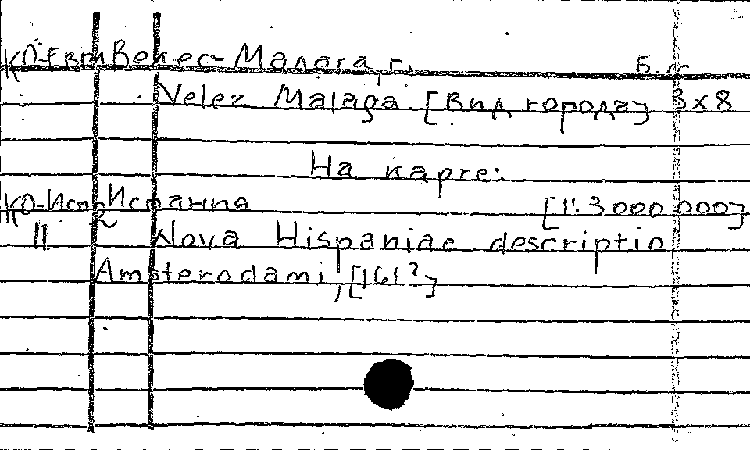 КО-Евр Велес-Малага, г. Б.м.
Velez Malaga. [Вид города] 3х8
На карте:
КО-Исп Испания [1:3 000 000]
II 2 Nova Hispaniae descriptio
Amsterodami, [161?]